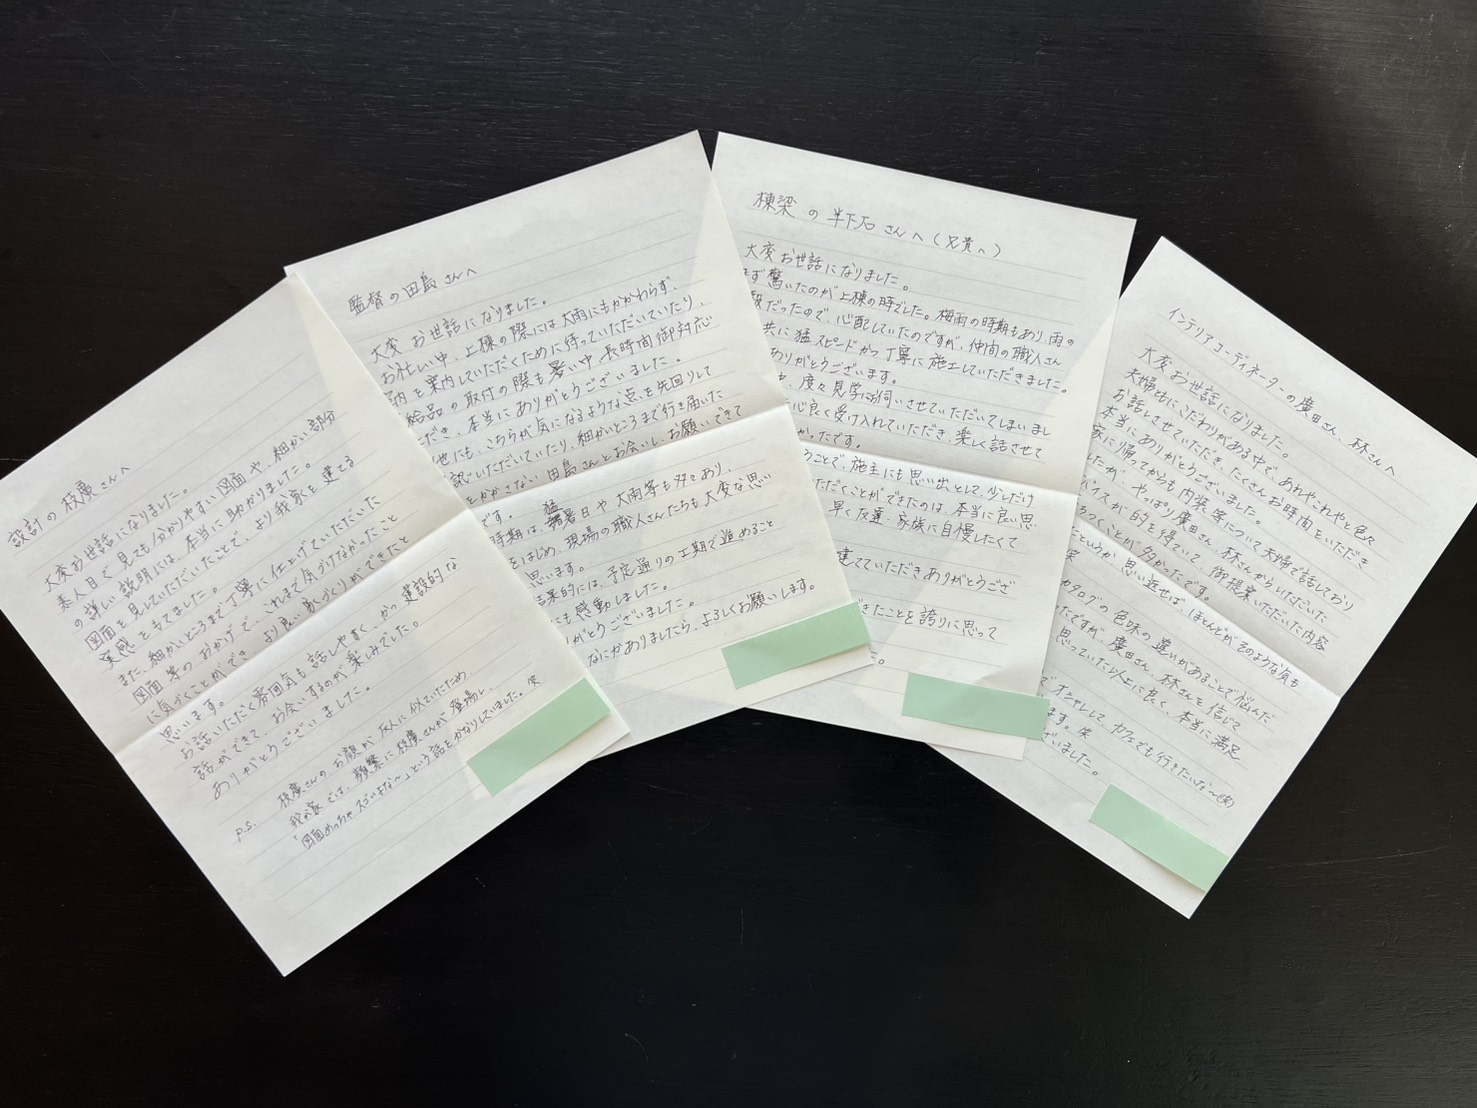 設計の 枝廣 さんへ
大変お世話になりました。
素人目で見ても分かりやすい図面や、細かい部分
の詳しい説明には、本当に助かりました。
図面を見していただいたことで、より我家を建てる
実感をもてました。
また、細かいところまで丁寧に仕上げていただいた
図面等のおかげで、これまで気づけなかったこと
に気づくことができ、より良い家づくりができたと
思います。
お話いただく雰囲気も話しやすく、かつ建設的な
話ができて、お会いするのが楽しみでした。
ありがとうございました。
p.s. 枝廣さんのお顔が友人に似ていたため
我が家では、頻繁に枝廣さんが登場し、
「図面めっちゃスゴいよな〜」という話をかなりしていました。笑
監督の田島さんへ
大変お世話になりました。
お忙しい中、上棟の際には大雨にもかかわらず、
内を案内していただくために待っていただいていたり、
給品の取付の際も暑い中長時間御対応
だき、本当にありがとうございました。
他にも、こちらが気になるような点を先回りして
認いただいていたり、細かいところまで行き届いた
をかかさない田島さんとお会いし、お願いできて
です。
時期は、猛暑日や大雨等も多々あり、
をはじめ、現場の職人さんたちも大変な思い
思います。
結果的には、予定通りの工期で進めること
にも感動しました。
がとうございました。
なにかありましたら、よろしくお願いします。
棟梁の半下石さんへ(兄貴へ)
大変お世話になりました。
まず驚いたのが上棟の時でした。梅雨の時期もあり、雨の
段だったので、心配していたのですが、仲間の職人さん
共に猛スピードかつ丁寧に施工していただきました。
ありがとうございます。
中、度々見学にお伺いさせていただいてしまいまし
心良く受け入れていただき、楽しく話させて
かったです。
うことで、施主にも思い出として、少しだけ
ただくことができたのは、本当に良い思
早く友達・家族に自慢したくて
建てていただきありがとうござ
できたことを誇りに思って
インテリアコーディネーターの廣田さん、林さんへ
大変お世話になりました。
夫婦ともにこだわりがある中で、あれやこれやと色々
お話しさせていただき、たくさんお時間をいただき
本当にありがとうございました。
家に帰ってからも内装等について夫婦で話しており
したが、やっぱり廣田さん、林さんからいただいた
バイスが的を得ていて、御提案いただいた内容
ちつくことが多かったです。
ことというか、思い返せば、ほとんどがそのような気も
笑
カタログの色味の違いがあることで悩んだ
たですが、廣田さん、林さんを信じて
思っていた以上に良く、本当に満足
でオシャレして、カフェでも行きたいな〜(笑)
ます。笑
ざいました。